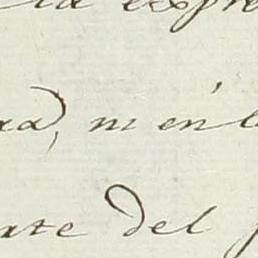 la expre
ra, ni en l
ate del